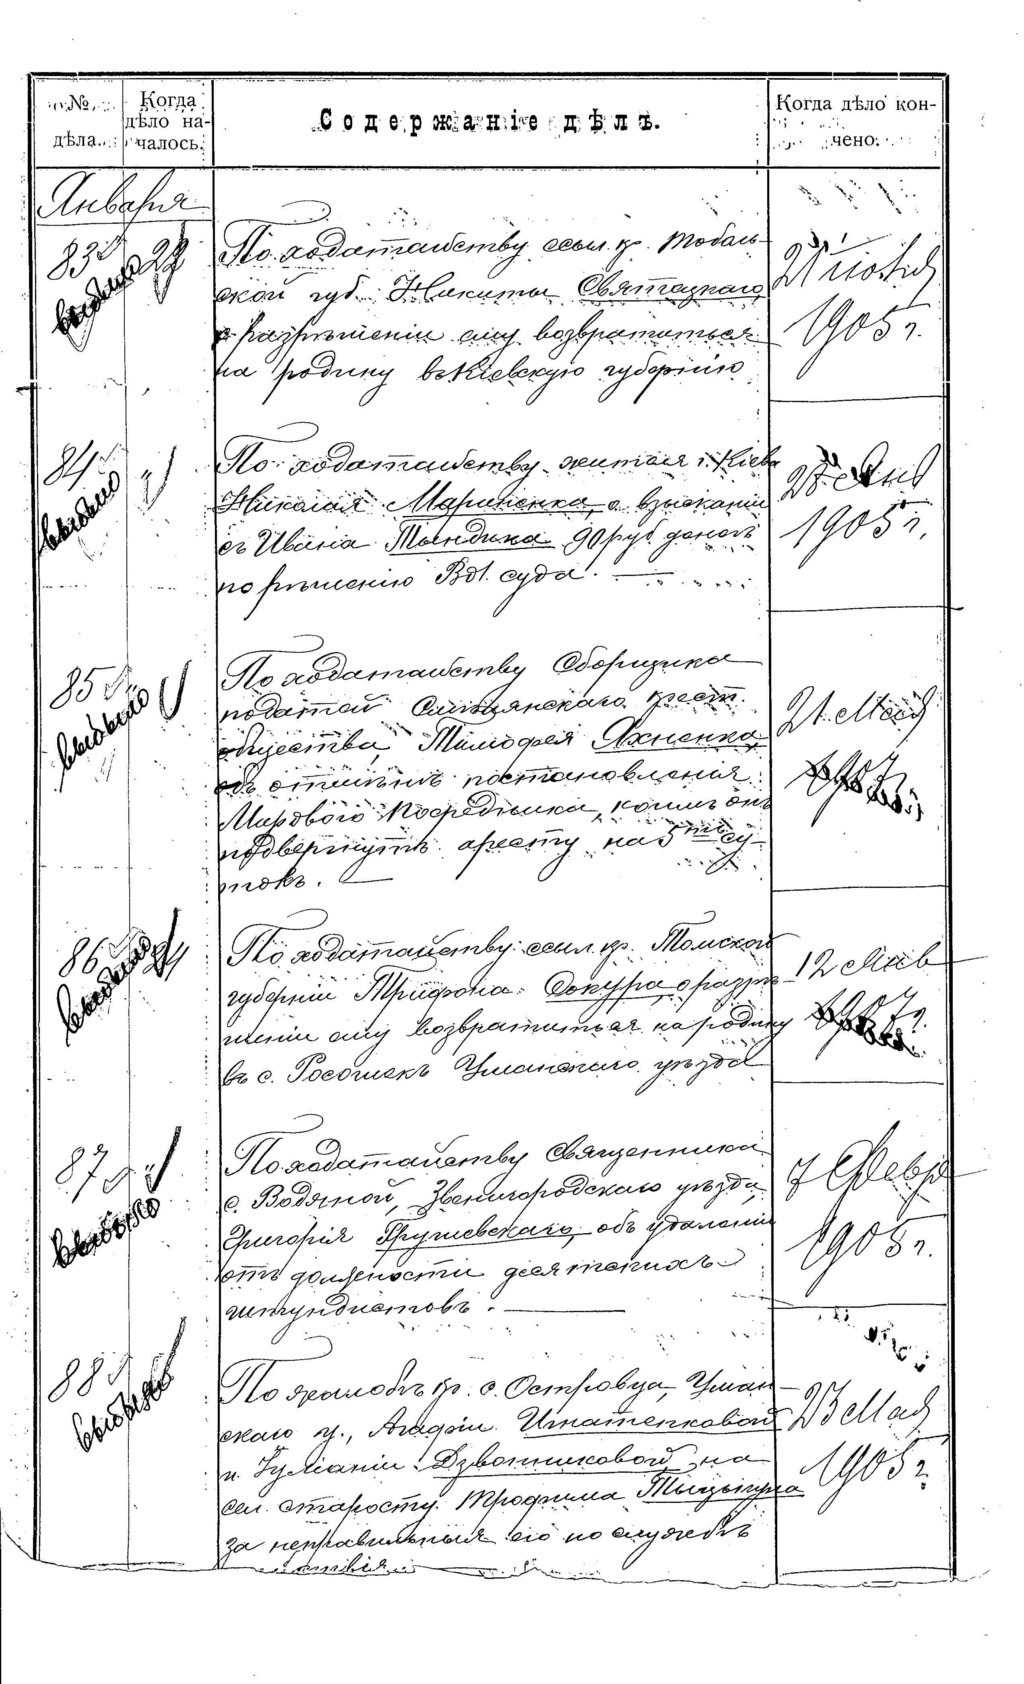 № дѣла.
Когда дѣло началось.
Содержаніе дѣлъ.
Когда дѣло кончено.
Января
83
выбыло
По ходатайству ссыл. кр. Тоболь-
ской губ. Никиты Святецкаго
о разрѣшеніи ему возвратиться
на родину въ Кіевскую губернію
21 іюня
1905 г.
84
выбыло
По ходатайству жителя г. Кіева
Николая Мариненка, о взысканіи
съ Ивана Тындика 90 руб. денегъ
по рѣшенію Вол. суда.
28 Янв
1905 г.
85
выбыло
По ходатайству Сборщика
податей крест.
общества, Тимофея Яхненка,
объ отмѣнѣ постановленія
Мирового Посредника, коимъ онъ
подвергнутъ аресту на 5 су-
токъ.
21 Мая
86
выбыло
По ходатайству ссыл. кр. Томской
губерніи Трифона Сокура, о разрѣ-
шеніи ему возвратиться на родину
въ с. Росошекъ Уманскаго уѣзда
12 Янв
87
выбыло
По ходатайству Священника
с. Водяной, Звенигородскаго уѣзда,
Григорія Грушевскаго, объ удаленіи
отъ должности десятскихъ
штундистовъ.
7 Февр
1905 г.
88
выбыло
По жалобѣ кр. с. Островца, Уман-
скаго у., Агафіи Игнатенковой
и Іуліаніи Дзвонниковой, на
сел. старосту Трофима
за неправильныя его по службѣ
23 Мая
1905 г.